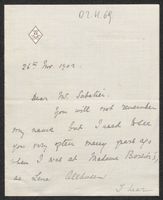 02.11.69
26th Nov. 1902.
Dear Mr. Sabatier.
You will not remember
my name but I used to see
you very often many years ago
when I was at Madame
as Lena
I hear